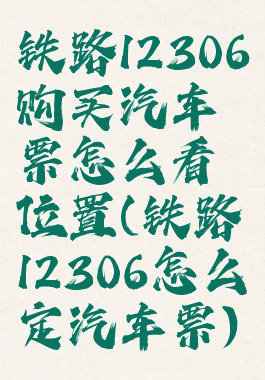 铁路12306
购买汽车
票怎么看
位置(铁路
12306怎么
定汽车票)